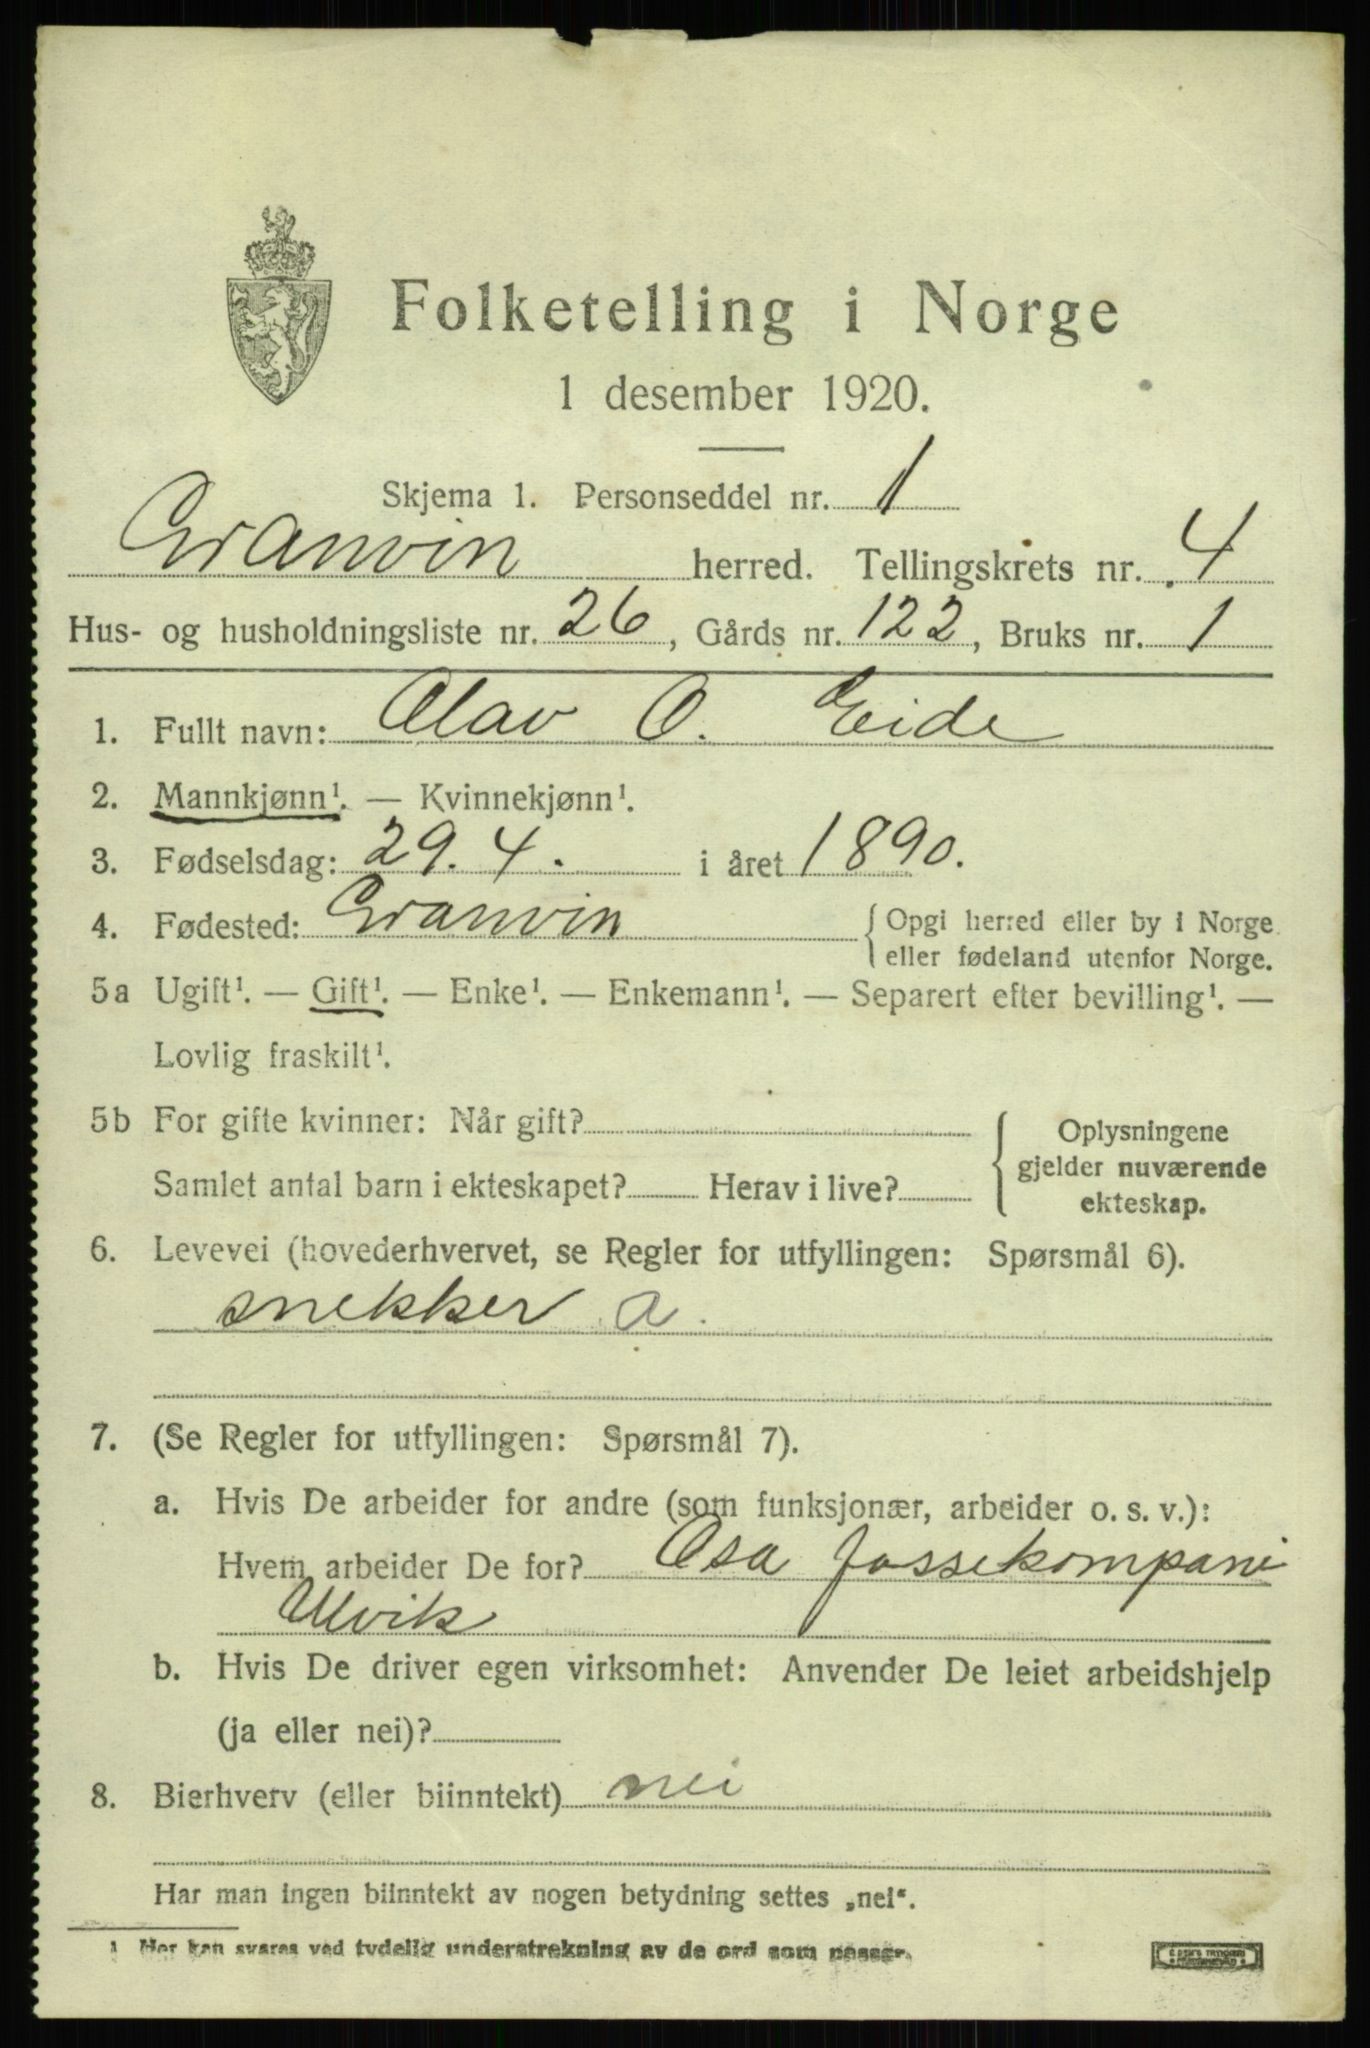 Folketelling i Norge
1 desember 1920.
Skjema 1. Personseddel nr. 1
Granvin herred. Tellingskrets nr. 4
Hus- og husholdningsliste nr. 26, Gårds nr. 122, Bruks nr. 1
1. Fullt navn: Olav O. Eide
2. Mannkjønn¹. — Kvinnekjønn¹.
3. Fødselsdag: 29. 4. i året 1890.
4. Fødested: Granvin { Opgi herred eller by i Norge
eller fødeland utenfor Norge.
5a Ugift¹. — Gift¹. — Enke¹. — Enkemann¹. — Separert efter bevilling¹. —
Lovlig fraskilt¹.
5b For gifte kvinner: Når gift?
Samlet antal barn i ekteskapet? Herav i live?
{ Oplysningene
gjelder nuværende
ekteskap.
6. Levevei (hovederhvervet, se Regler for utfyllingen: Spørsmål 6).
snekker a.
7. (Se Regler for utfyllingen: Spørsmål 7).
a. Hvis De arbeider for andre (som funksjonær, arbeider o. s. v.):
Hvem arbeider De for? Osa fossekompani
Ulvik
b. Hvis De driver egen virksomhet: Anvender De leiet arbeidshjelp
(ja eller nei)?
8. Bierhverv (eller biinntekt) nei
Har man ingen biinntekt av nogen betydning settes „nei“.
¹ Her kan svares ved tydelig understrekning av de ord som passer.